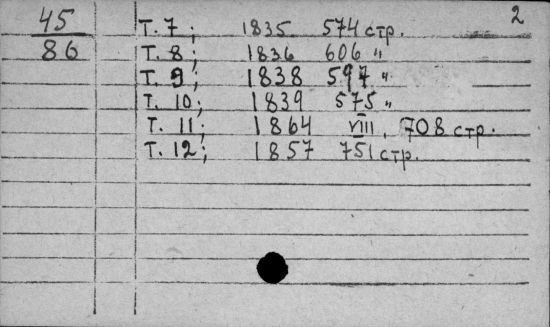 2
45
86
Т. 7; 1835 574 стр.
Т. 8; 1836 606 "
Т. 9; 1838 597 "
Т. 10; 1839 575 "
Т. 11; 1864 VIII, 708 стр.
Т. 12; 1857 751 стр.